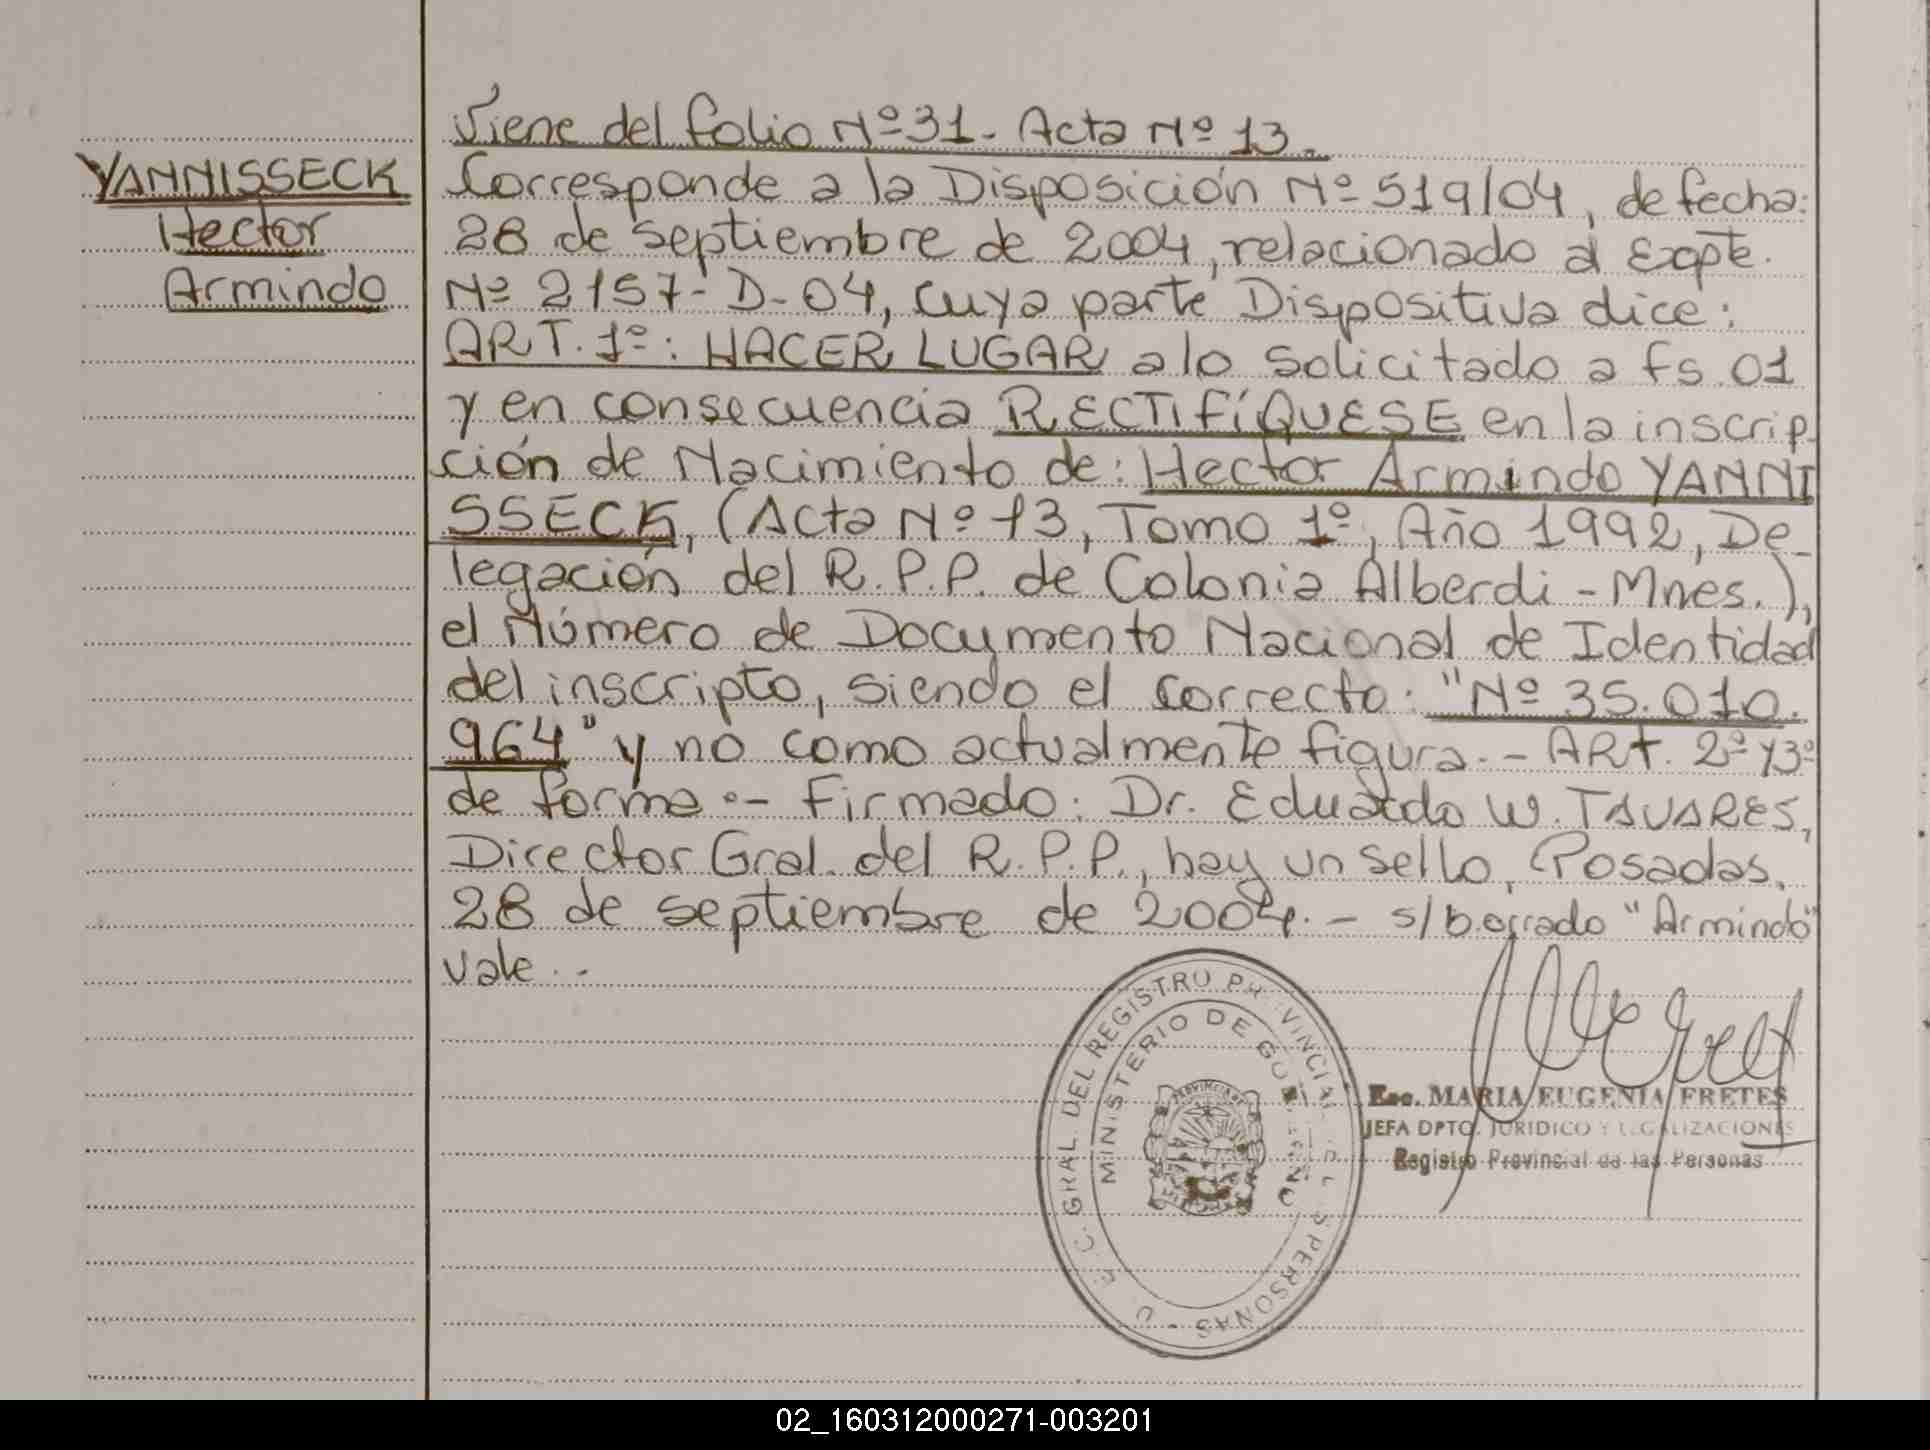 Viene del folio Nº 31- Acta Nº 13.
YANNISSECK
Hector
Armindo
Corresponde a la Disposición Nº 519/04, de fecha:
28 de septiembre de 2004, relacionado al Expte.
Nº 2157-D-04, cuya parte Dispositiva dice:
ART. 1º: HACER LUGAR a lo solicitado a fs. 01
y en consecuencia RECTIFÍQUESE en la inscrip-
ción de Nacimiento de: Hector Armindo YANNI
SSECK, (Acta Nº 13, Tomo 1º, Año 1992, De-
legación del R.P.P. de Colonia Alberdi - Mnes.),
el Número de Documento Nacional de Identidad
del inscripto, siendo el correcto: "Nº 35.010.
964" y no como actualmente figura.- ART. 2º y 3º
de forma.- Firmado: Dr. Eduardo W. TAVARES,
Director Gral. del R.P.P., hay un sello, Posadas,
28 de septiembre de 2004.- s/borrado "Armindo"
vale.-
GRAL. DEL REGISTRO PROVINCIAL PERSONAS
MINISTERIO DE GOBIERNO
Esc. MARIA EUGENIA FRETES
JEFA DPTO. JURIDICO Y LEGALIZACIONES
Registro Provincial de las Personas
02_160312000271-003201